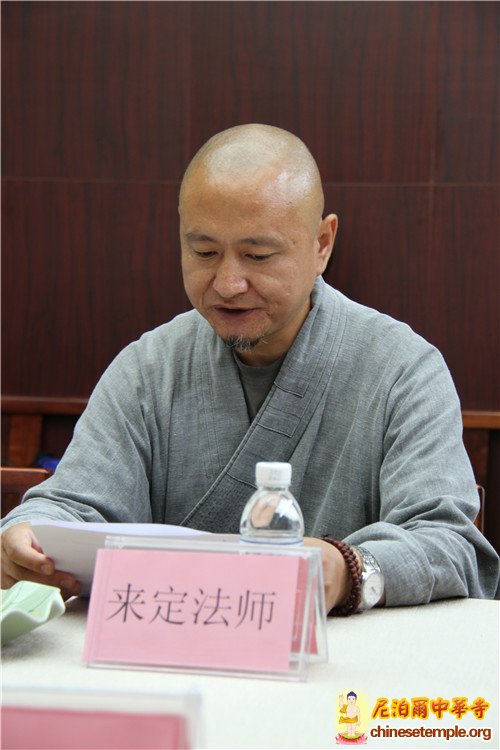 来定法师
尼泊爾中華寺
chinesetemple.org